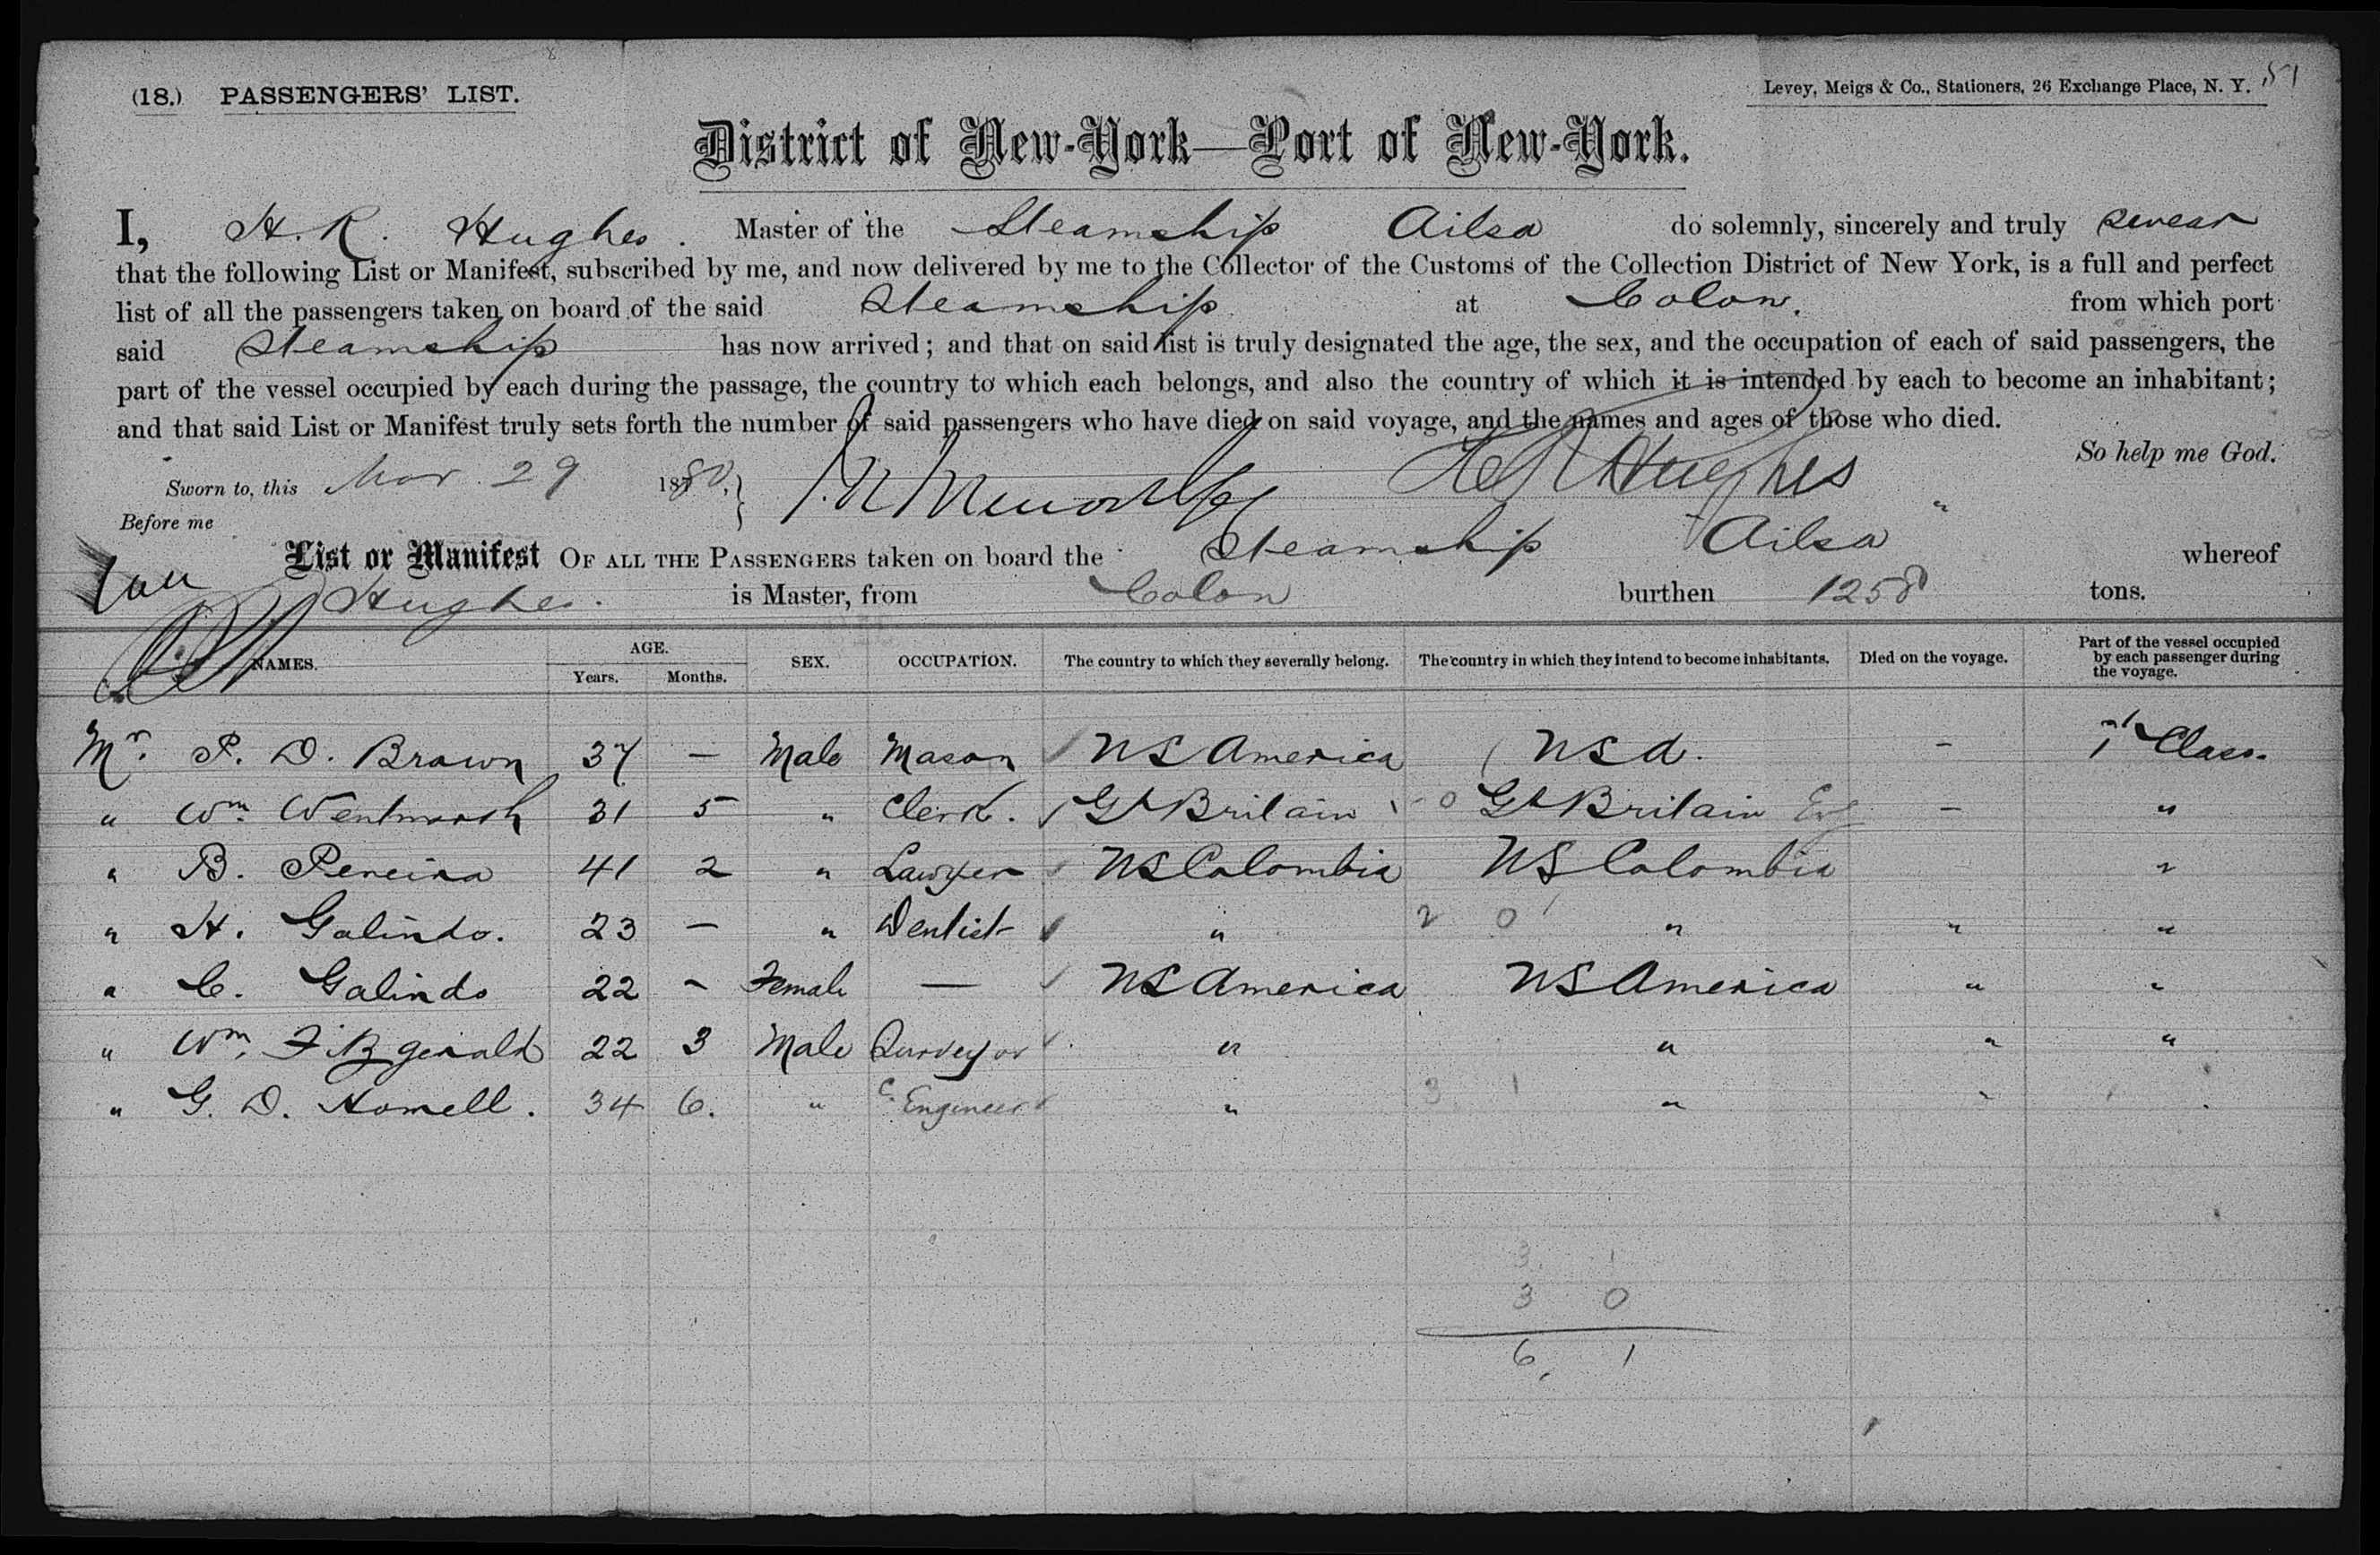 (18.) PASSENGERS' LIST. Levey, Meigs & Co., Stationers, 26 Exchange Place, N. Y. 51
District of New-York—Port of New-York.
I, H. R. Hughes. Master of the Steamship Ailsa do solemnly, sincerely and truly swear
that the following List or Manifest, subscribed by me, and now delivered by me to the Collector of the Customs of the Collection District of New York, is a full and perfect
list of all the passengers taken on board of the said Steamship at Colon. from which port
said Steamship has now arrived; and that on said list is truly designated the age, the sex, and the occupation of each of said passengers, the
part of the vessel occupied by each during the passage, the country to which each belongs, and also the country of which it is intended by each to become an inhabitant;
and that said List or Manifest truly sets forth the number of said passengers who have died on said voyage, and the names and ages of those who died.
So help me God.
Sworn to, this Mar. 29 1880. } H R Hughes
Before me
List or Manifest OF ALL THE PASSENGERS taken on board the Steamship "Ailsa" whereof
Hughes. is Master, from Colon burthen 1258 tons.
NAMES. AGE. Years. Months. SEX. OCCUPATION. The country to which they severally belong. The country in which they intend to become inhabitants. Died on the voyage. Part of the vessel occupied by each passenger during the voyage.
Mr. P. D. Brown 37 – Male Mason US America USA. – 1st Class.
" Wm. Wentworth 31 5 " Clerk. Gt Britain 0 Gt Britain – "
" B. Pereira 41 2 " Lawyer US Colombia US Colombia "
" H. Galindo. 23 – " Dentist " 2 0 " " "
" C. Galindo 22 – Female — US America US America " "
" Wm. Fitzgerald 22 3 Male Surveyor " " " "
" G. D. Homell. 34 6. " C. Engineer " 3 1 " "
3 1
3 0
6, 1